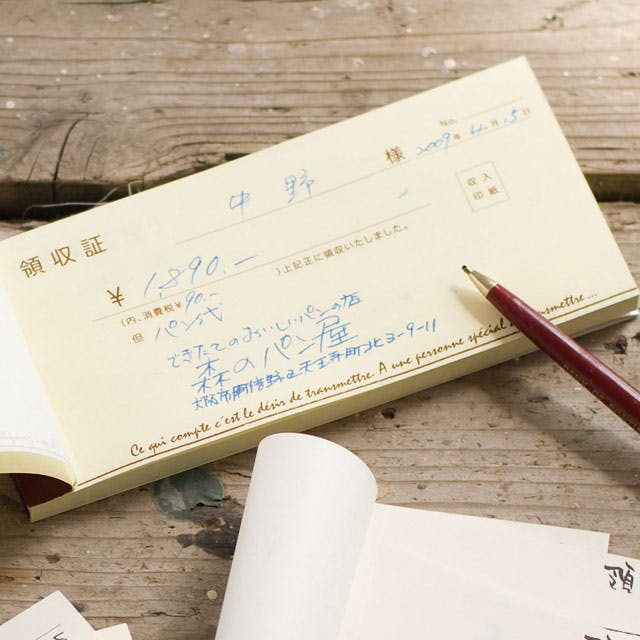 No.
2009年 4月 15日
領収証
中野 様
収入
印紙
¥ 1,890.—
(内、消費税¥ 90.— )上記正に領収いたしました。
但 パン代
できたてのおいしいパンの店
森のパン屋
大阪市阿倍野区天王寺町北3-9-11
Ce qui compte c'est le désir de tranmettre. A une personne spécial
mettre...
領